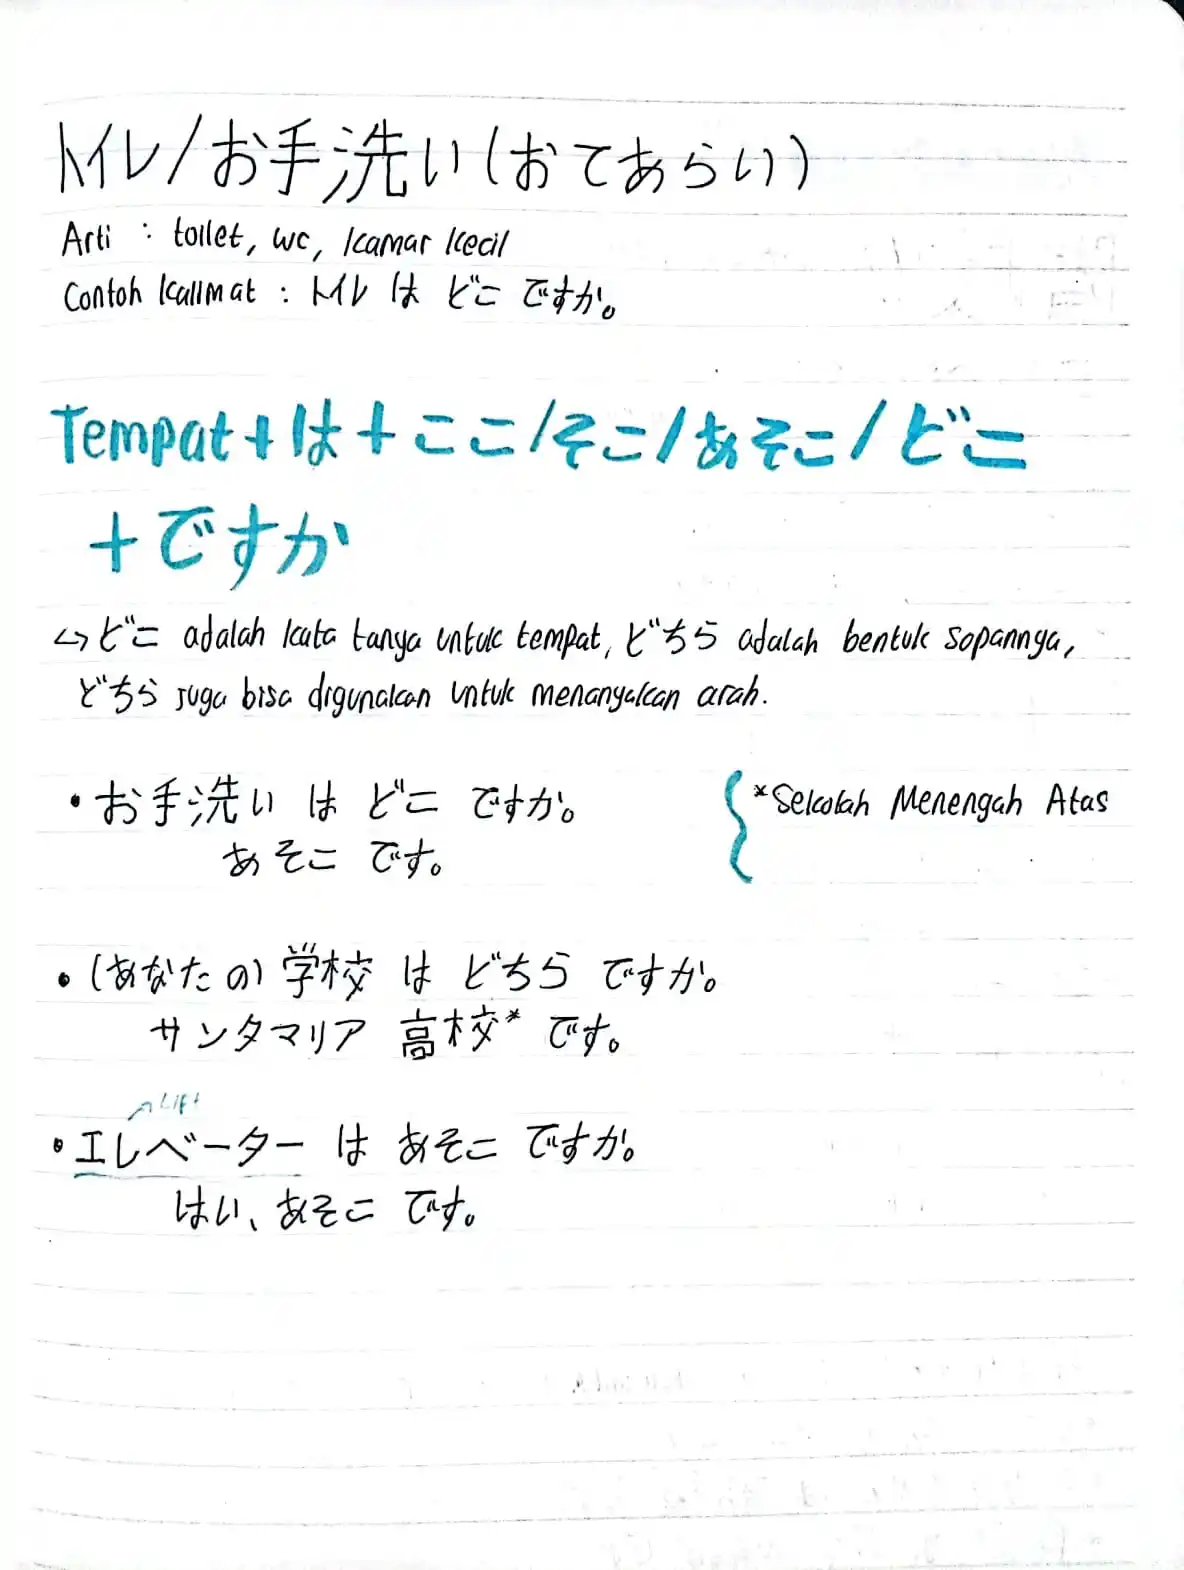 トイレ/お手洗い(おてあらい)
Arti : toilet, wc, kamar kecil
Contoh kalimat : トイレ は どこ ですか。
Tempat + は + ここ/そこ/あそこ/どこ
+ ですか
↳ どこ adalah kata tanya untuk tempat, どちら adalah bentuk sopannya,
どちら juga bisa digunakan untuk menanyakan arah.
• お手洗い は どこ ですか。
あそこ です。
*Sekolah Menengah Atas
• (あなたの) 学校 は どちら ですか。
サンタマリア 高校* です。
Lift
• エレベーター は あそこ ですか。
はい、あそこ です。